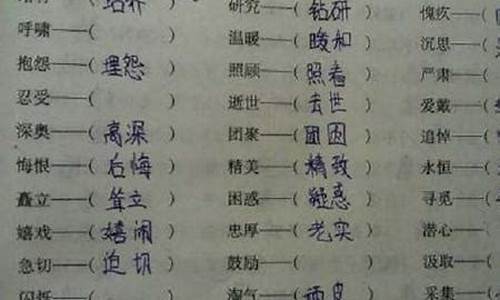 培养 研究——(钻研) 愧疚——(
呼啸——( ) 温暖——(暖和) 沉思——(
抱怨——(埋怨) 照顾——(照看) 严肃——(
忍受——( ) 逝世——(去世) 爱戴——(
深奥——(高深) 团聚——(团圆) 追悼——(
悔恨——(后悔) 精美——(精致) 永恒——(
矗立——(耸立) 困惑——(疑惑) 寻觅——(
嬉戏——(嬉闹) 忠厚——(老实) 潜心——(
急切——(迫切) 鼓励——( ) 汲取——(
闪烁——( 淘气——(顽皮) 采集——(